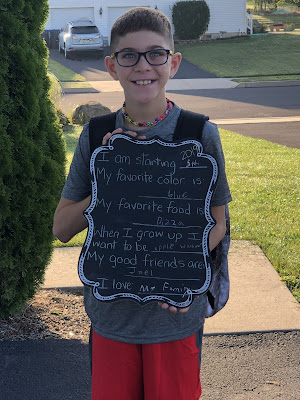 I am starting 5th
My favorite color is:
blue
My favorite food is
Pizza
When I grow up I
want to be
My good friends are
Joel
I love my Family